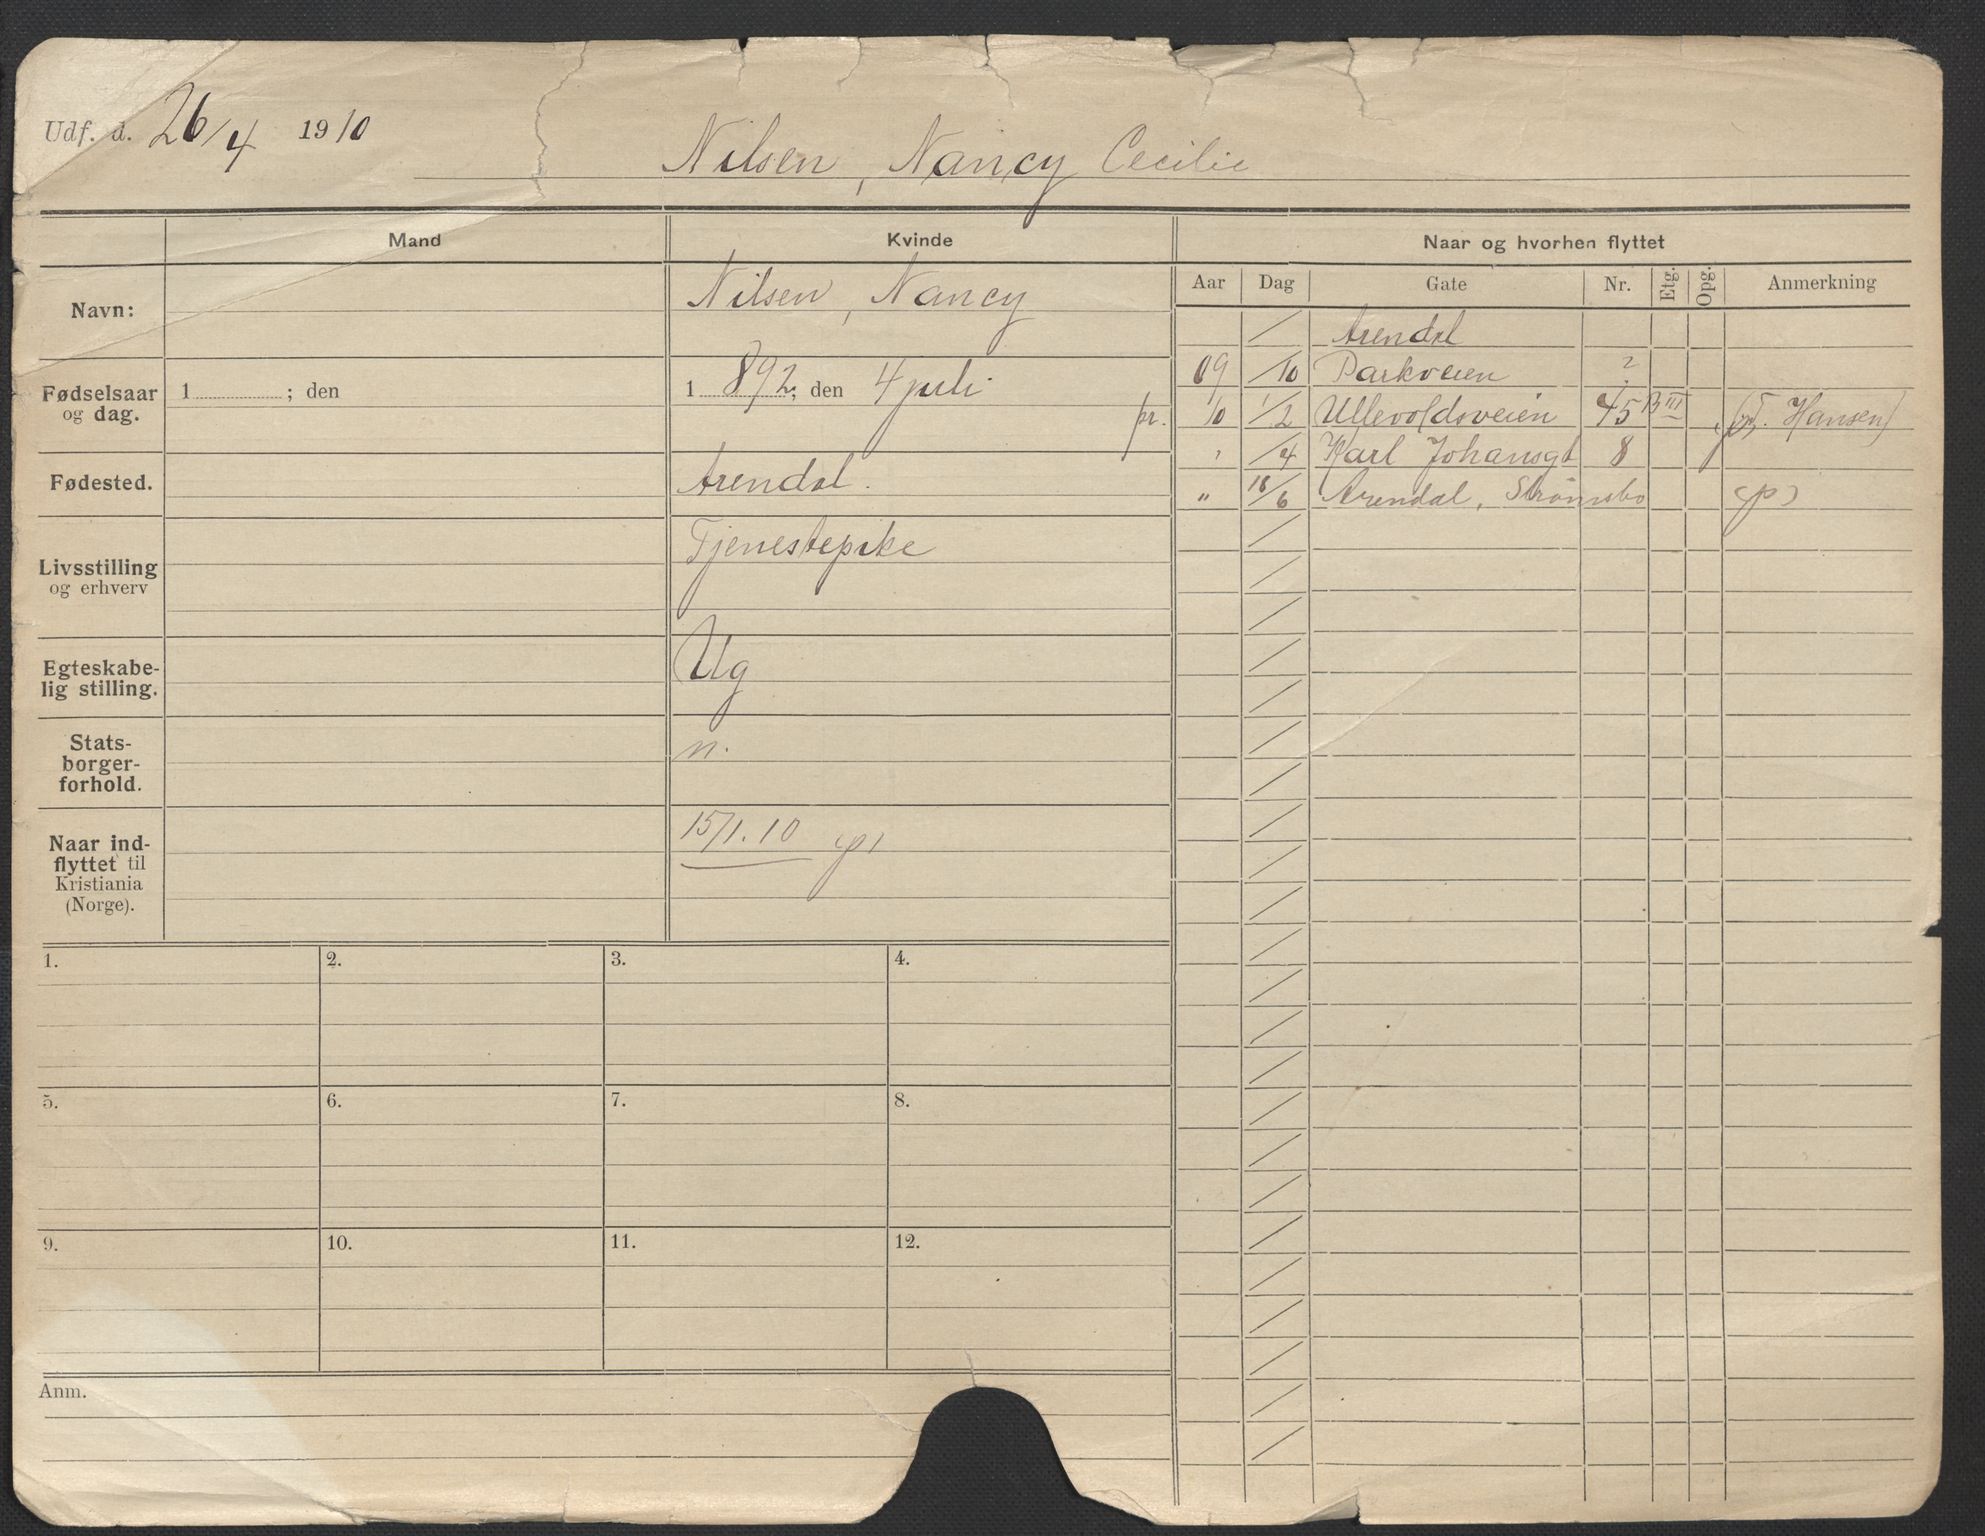 Udf. d. 26/4 1910
Nilsen, Nancy Cecilie
Mand
Kvinde
Naar og hvorhen flyttet
Aar Dag Gate Nr. Etg. Opg. Anmerkning
Navn:
Nilsen, Nancy
Fødselsaar
og dag.
1 ; den
1 892; den 4 juli
pr.
Fødested.
Arendal.
Livsstilling
og erhverv
Tjenestepike
Egteskabe-
lig stilling.
Ug
Stats-
borger-
forhold.
n.
Naar ind-
flyttet til
Kristiania
(Norge).
15/1. 10
/ Arendal
09 /10 Parkveien ?
10 1/2 Ullevoldsveien 45 B III Hansen)
" /4 Karl Johansgt 8
" 18/6 Arendal, Strømsbo (p)
1.
2.
3.
4.
5.
6.
7.
8.
9.
10.
11.
12.
Anm.